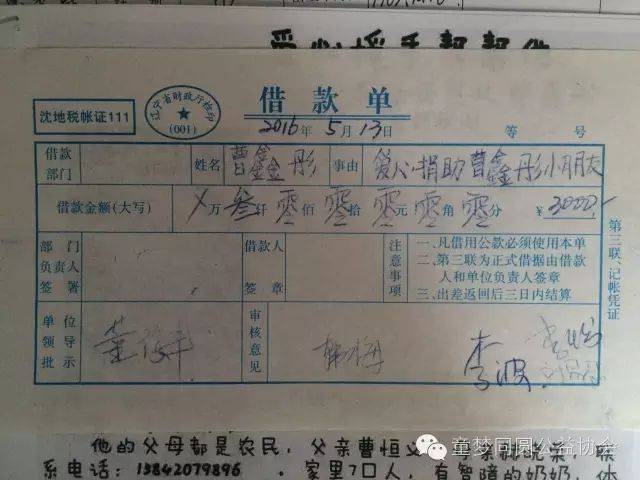 爱心援手帮帮他
沈地税帐证111
辽宁省财政厅检印
(001)
借款单
2016年5月13日 等 号
借款部门 姓名 曹鑫彤 事由 爱心捐助曹鑫彤小朋友
借款金额(大写) ㄨ万叁仟零佰零拾零元零角零分 ¥3000.-
部门负责人签署 借款人签章 注意事项
一、凡借用公款必须使用本单
二、第三联为正式借据由借款
人和单位负责人签章
三、出差返回后三日内结算
单位领导批示 审核意见 李波
第三联、记帐凭证
童梦同圆公益协会
他的父母都是农民，父亲曹恒义
系电话：13842079896 . 家里7口人，有智障的奶奶，体